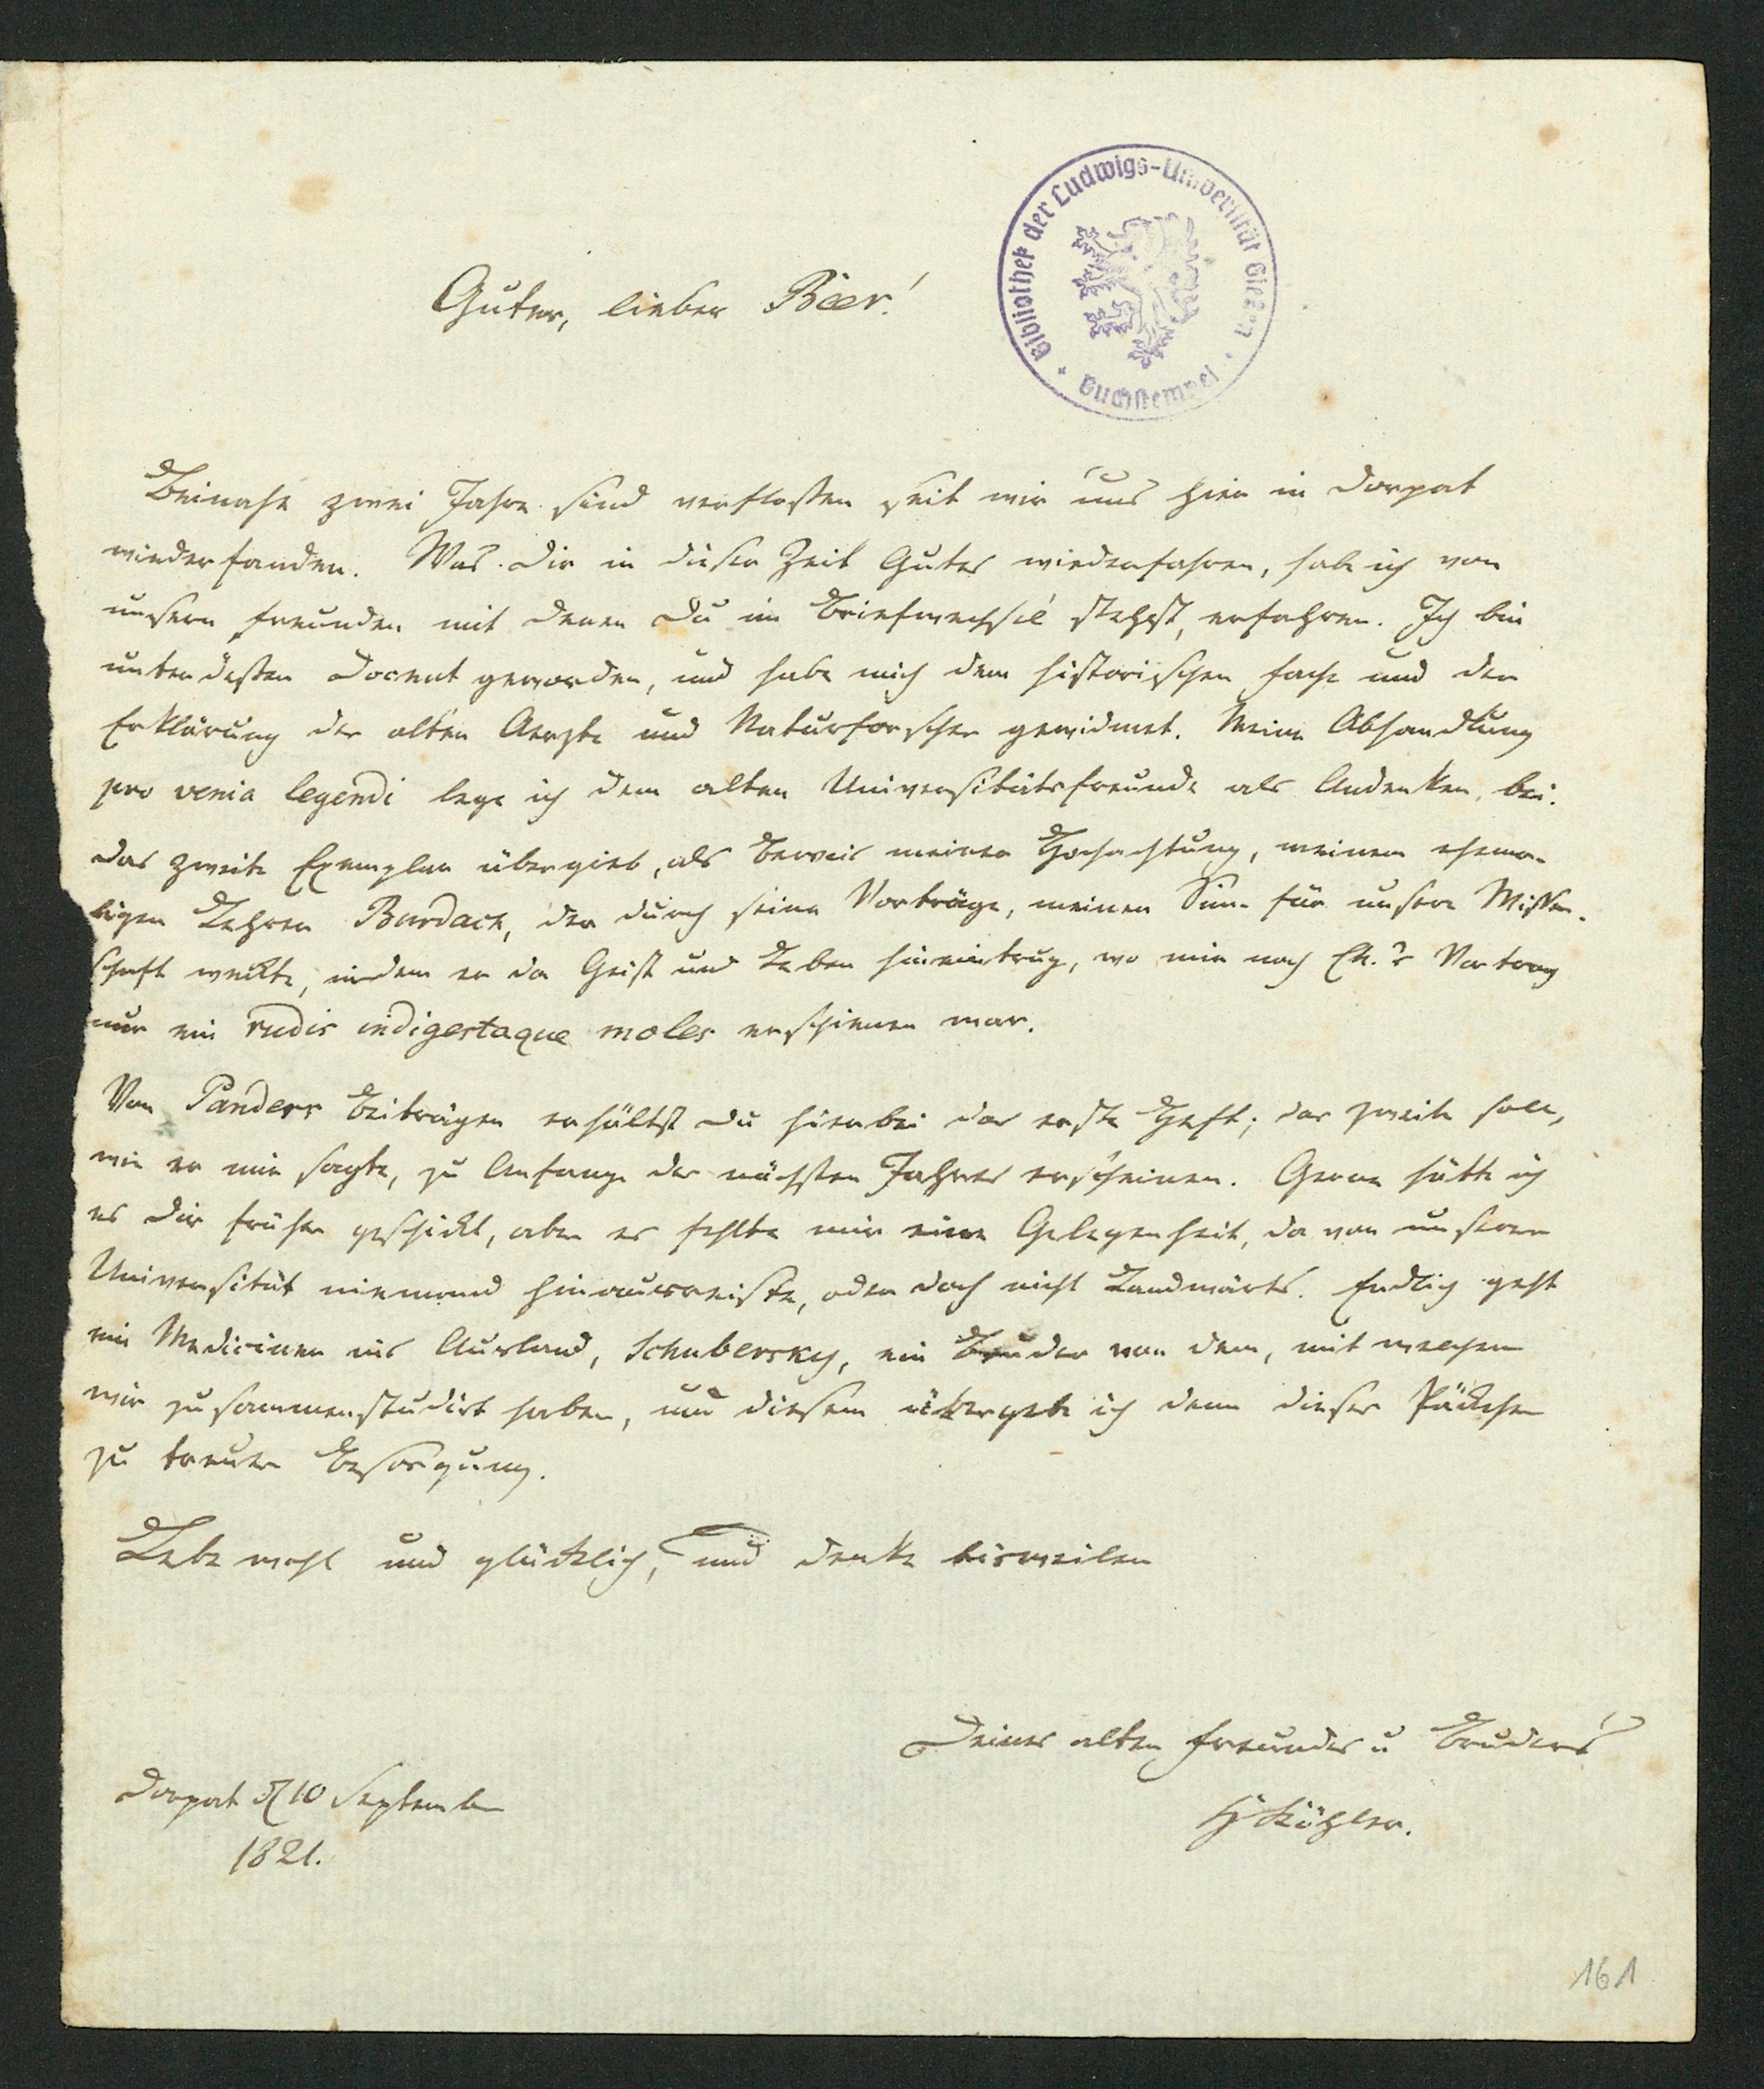 Bibliothek der Ludwigs-Universität Gießen
Buchstempel
Guter, lieber Baer!
Beinahe zwei Jahre sind verfloßen seit wir uns hier in Dorpat
wiederfanden. Was Dir in dieser Zeit Gutes wiederfahren, habe ich von
unsern Freunden mit denen Du im Briefwechsel stehst, erfahren. Ich bin
unterdeßen Docent geworden, und habe mich dem historischen Fache und der
Erklärung der alten Aerzte und Naturforscher gewidmet. Meine Abhandlung
pro venia legendi lege ich dem alten Universitätsfreunde als Andenken bei.
Das zweite Exemplar übergieb, als Beweis meiner Hochachtung, meinem ehema-
ligen Lehrer Burdach, der durch seine Vorträge, meinen Sinn für unsere Wissen-
schaft weckte, indem er da Geist und Leben hineintrug, wo mir nach Vortrag
nur ein rudis indigestaque moles erschienen war.
Von Panders Beiträgen erhältst Du hierbei das erste Heft; das zweite soll,
wie er mir sagte, zu Anfange des nächsten Jahres erscheinen. Gerne hätte ich
es Dir früher geschickt, aber es fehlte mir eine Gelegenheit, da von unserer
Universität niemand hinausreiste, oder doch nicht Landwärts. Endlich geht
ein Mediciner ins Ausland, Schubersky, ein Bruder von dem, mit welchem
wir zusammenstudirt haben, und diesem übergebe ich denn dieses Päckchen
zu treuer Besorgung.
Lebe wohl und glücklich, und denke bisweilen
Deines alten Freundes u Bruders
HKöhler.
Dorpat d 10 September
1821.
161